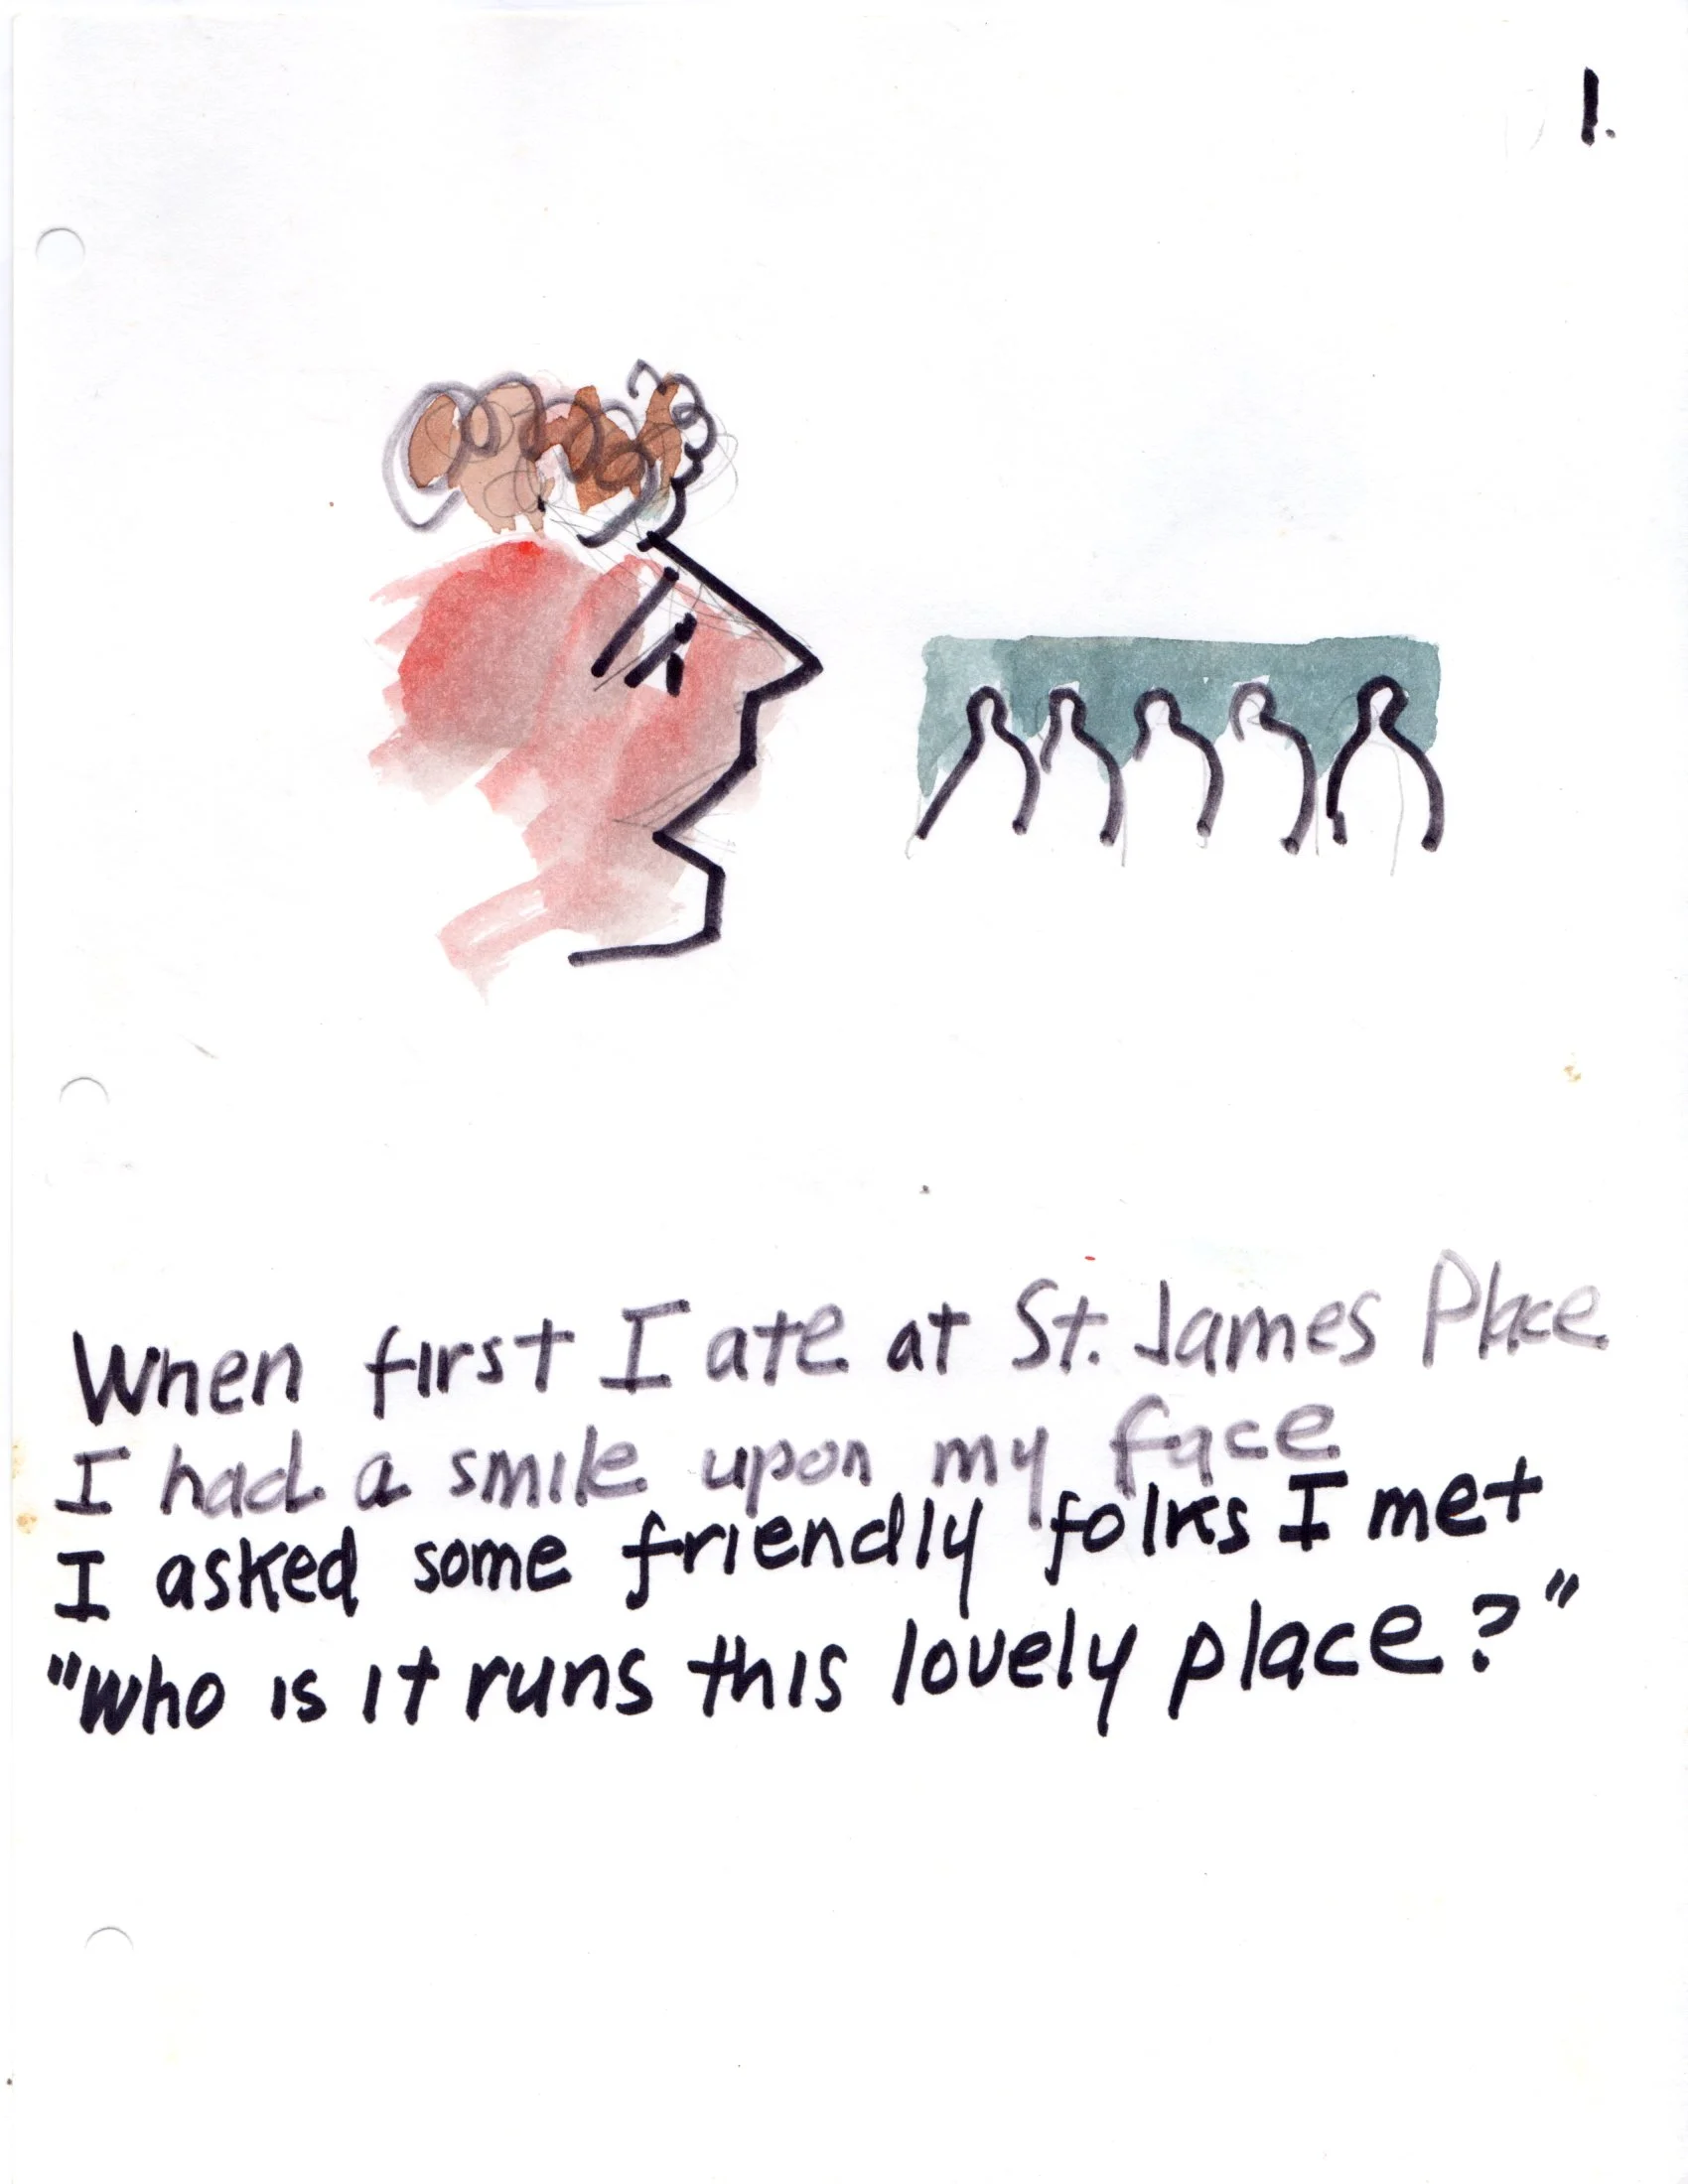 1.
When first I ate at St. James Place
I had a smile upon my face
I asked some friendly folks I met
"Who is it runs this lovely place?"